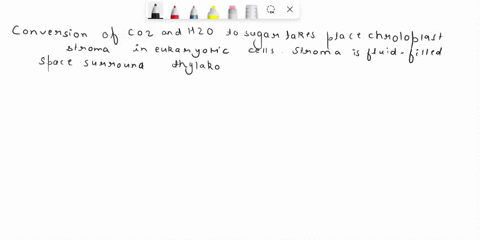 Conversion of CO2 and H2O to sugar takes place chroloplast
stroma in eukaryotic cells. Stroma is fluid-filled
space surround thylako